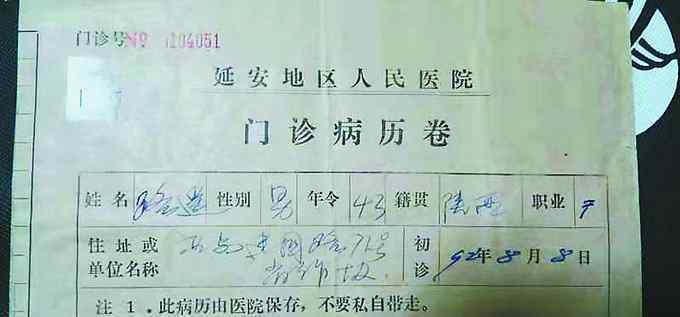 门诊号 No 104051
延安地区人民医院
门诊病历卷
姓名 路遥 性别 男 年令 43 籍贯 陕西 职业 干
住址或 西安建国路71号 初 92年8月8日
单位名称 省作协 诊
注 1．此病历由医院保存，不要私自带走。